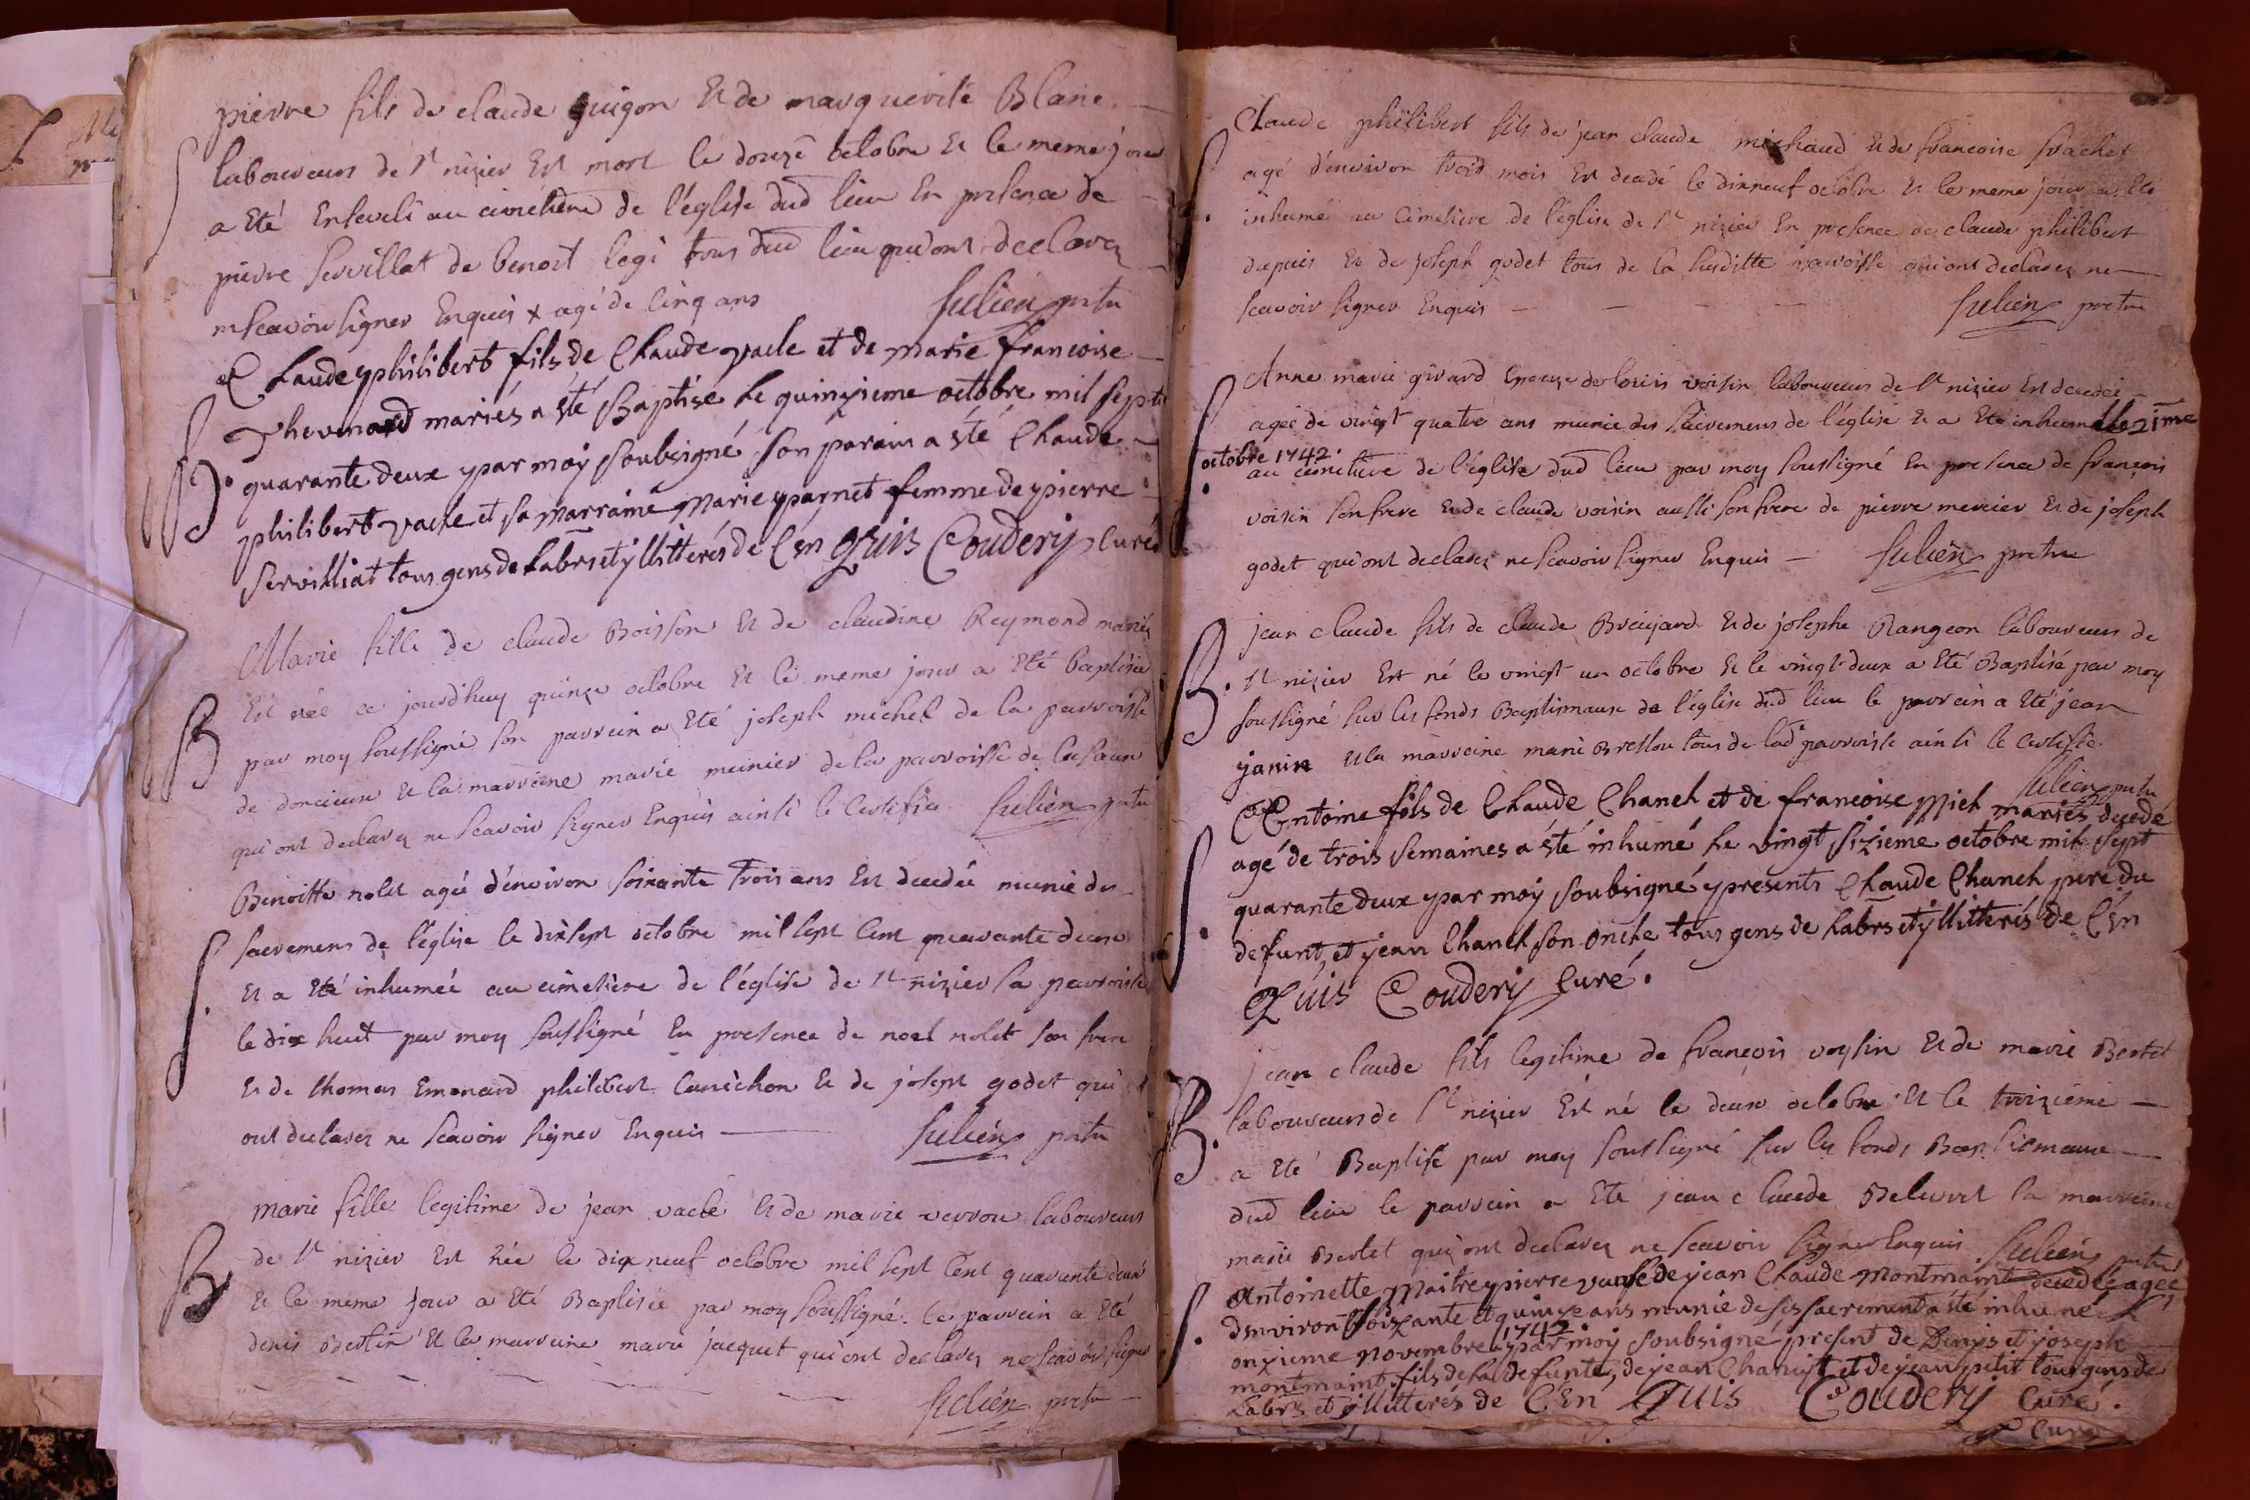 pierre fils de claude guigon et de marguerite Blanc
S
laboureurs de St nizier Est mort le douze octobre et le meme jour
a Eté Enseveli au cimetiere de l'église dud lieu En presence de
pierre servillat de benoit logi tous dud lieu qui ont declarez
ne scavoir signer Enquis x agé de cinq ans Julien pretre
Claude philibert fils de Claude vacle et de marie francoise
B.
Thevenard mariés a été Baptisé le quinzieme octobre mil sept
quarante deux par moy soubsigné son parain a été Claude
philibert vacle et sa marraine Marie pagnet femme de pierre
servilliat tous gens de labrs et yllitterés de l'En Quis Coudery Curé
Marie fille de claude Boisson et de claudine Reymond mariez
B
Est née ce jourdhuy quinze octobre et le meme jour a Eté baptisée
par moy soussigné son parrein a Eté joseph michel de la parroisse
de doncieux et la marreine marie meunier de la parroisse de
qui ont declarez ne scavoir signer Enquis ainsi le Certifie Julien pretre
Benoitte nolet agée d'environ soixante trois ans Est decedée munie des
S.
sacremens de l'église le dixsept octobre mil sept Cent quarante deux
et a Eté inhumée au cimetière de l'église de St nizier sa parroisse
le dix huit par moy soussigné En presence de noel nolet son frere
et de thomas Emonard philibert Curichon et de joseph godet qui
ont declarez ne scavoir signer Enquis Julien pretre
Marie fille legitime de jean vacle et de marie verrou laboureurs
B
de St nizier Est née le dix neuf octobre mil sept Cent quarante deux
et le meme jour a Eté Baptisée par moy soussigné. le parrein a Eté
denis Bertin et la marreine marie jacquet qui ont declarez ne scavoir signer
Julien pretre
Claude philibert fils de jean claude michaud et de francoise frachet
S.
agé d'environ trois mois Est decedé le dixneuf octobre et le meme jour a Eté
inhumé au Cimetiere de l'église de St nizier En presence de claude philibert
dupuis et de joseph godet tous de la susditte parroisse qui ont declarez ne
scavoir signer Enquis Julien pretre
Anne marie girard Epouse de louis voisin laboureurs de St nizier Est decedée
S.
agée de vingt quatre ans munie des sacremens de l'église et a Eté inhumée le 21me
octobre 1742.
au cimetiere de l'église dud lieu par moy soussigné En presence de françois
voisin son frere et de claude voisin aussi son frere de pierre mercier et de joseph
godet qui ont declarez ne scavoir signer Enquis Julien pretre
jean claude fils de claude Brujard et de josephe Rangeon laboureurs de
B.
St nizier Est né le vingt un octobre et le vingt deux a Eté Baptisé par moy
soussigné sur les fonds Baptismaux de l'église dud lieu le parrein a Eté jean
janin et la marreine marie Breslou tous de lade parroisse ainsi le Certifie
Julien pretre
Entoine fils de Claude Chanel et de francoise Pich mariés decedé
S.
agé de trois semaines a été inhumé le vingt sizieme octobre mil sept
quarante deux par moy soubsigné presents Claude Chanel pere du
defunt, et jean Chanel son oncle tous gens de labrs et yllitterés de l'En
Quis Coudery Curé.
jean claude fils legitime de françois voysin et de marie Bertet
B.
laboureurs de St nizier Est né le deux octobre et le troizième
a Eté Baptisé par moy soussigné sur les fonds Baptismaux
dud lieu le parrein a Eté jean claude Beluret la marreine
marie Bertet qui ont declarez ne scavoir signer Enquis Julien pretre
Antoinette Maitrepierre veufve de jean Claude Montmaint decedée agée
S.
d'environ soixante et quinze ans munie de ses sacrements a été inhumée l'
onzieme novembre 1742 par moy soubsigné, present de Denys et joseph
montmaint fils de la defunte, de jean Chanel et de jean petit tous gens de
labrs et yllitterés de l'En Quis Coudery Curé.
Curé